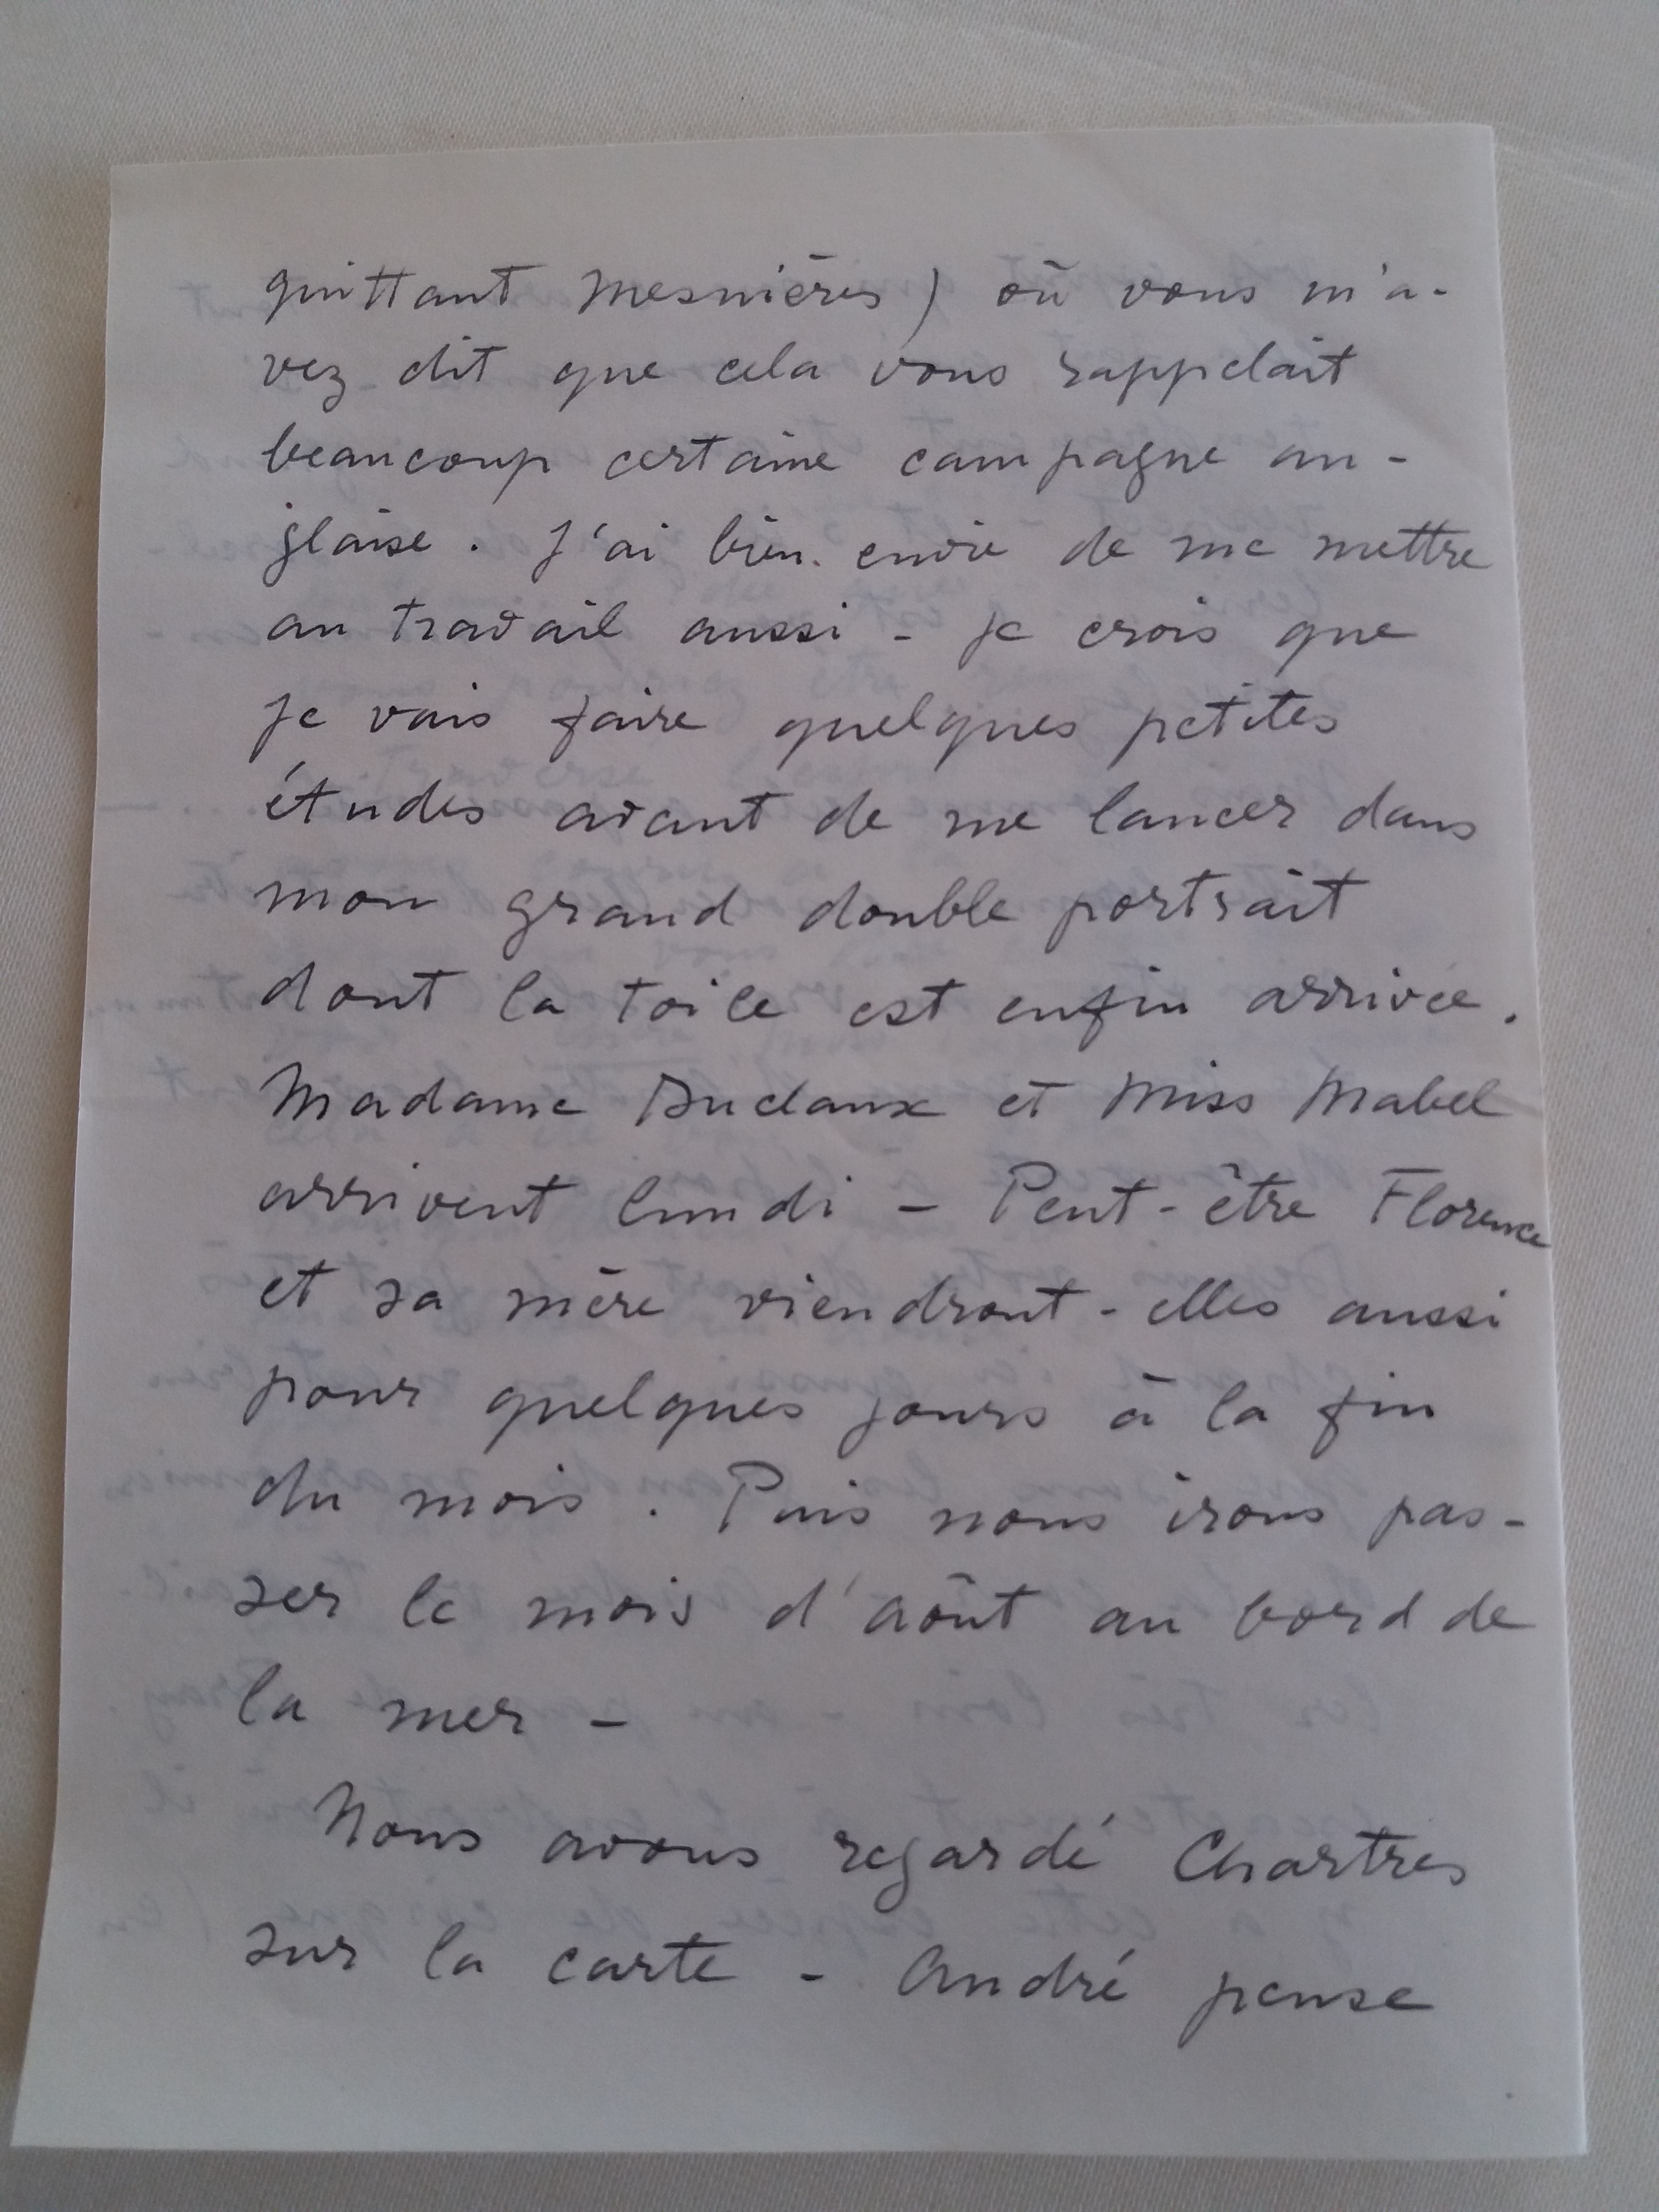 quittant Mesnières) où vous m'a-
vez dit que cela vous rappelait
beaucoup certaine campagne an-
glaise. J'ai bien envie de me mettre
au travail aussi - je crois que
je vais faire quelques petites
études avant de me lancer dans
mon grand double portrait
dont la toile est enfin arrivée.
Madame Duclaux et Miss Mabel
arrivent lundi - Peut-être Florence
et sa mère viendront-elles aussi
pour quelques jours à la fin
du mois. Puis nous irons pas-
ser le mois d'août au bord de
la mer -
Nous avons regardé Chartres
sur la carte - André pense